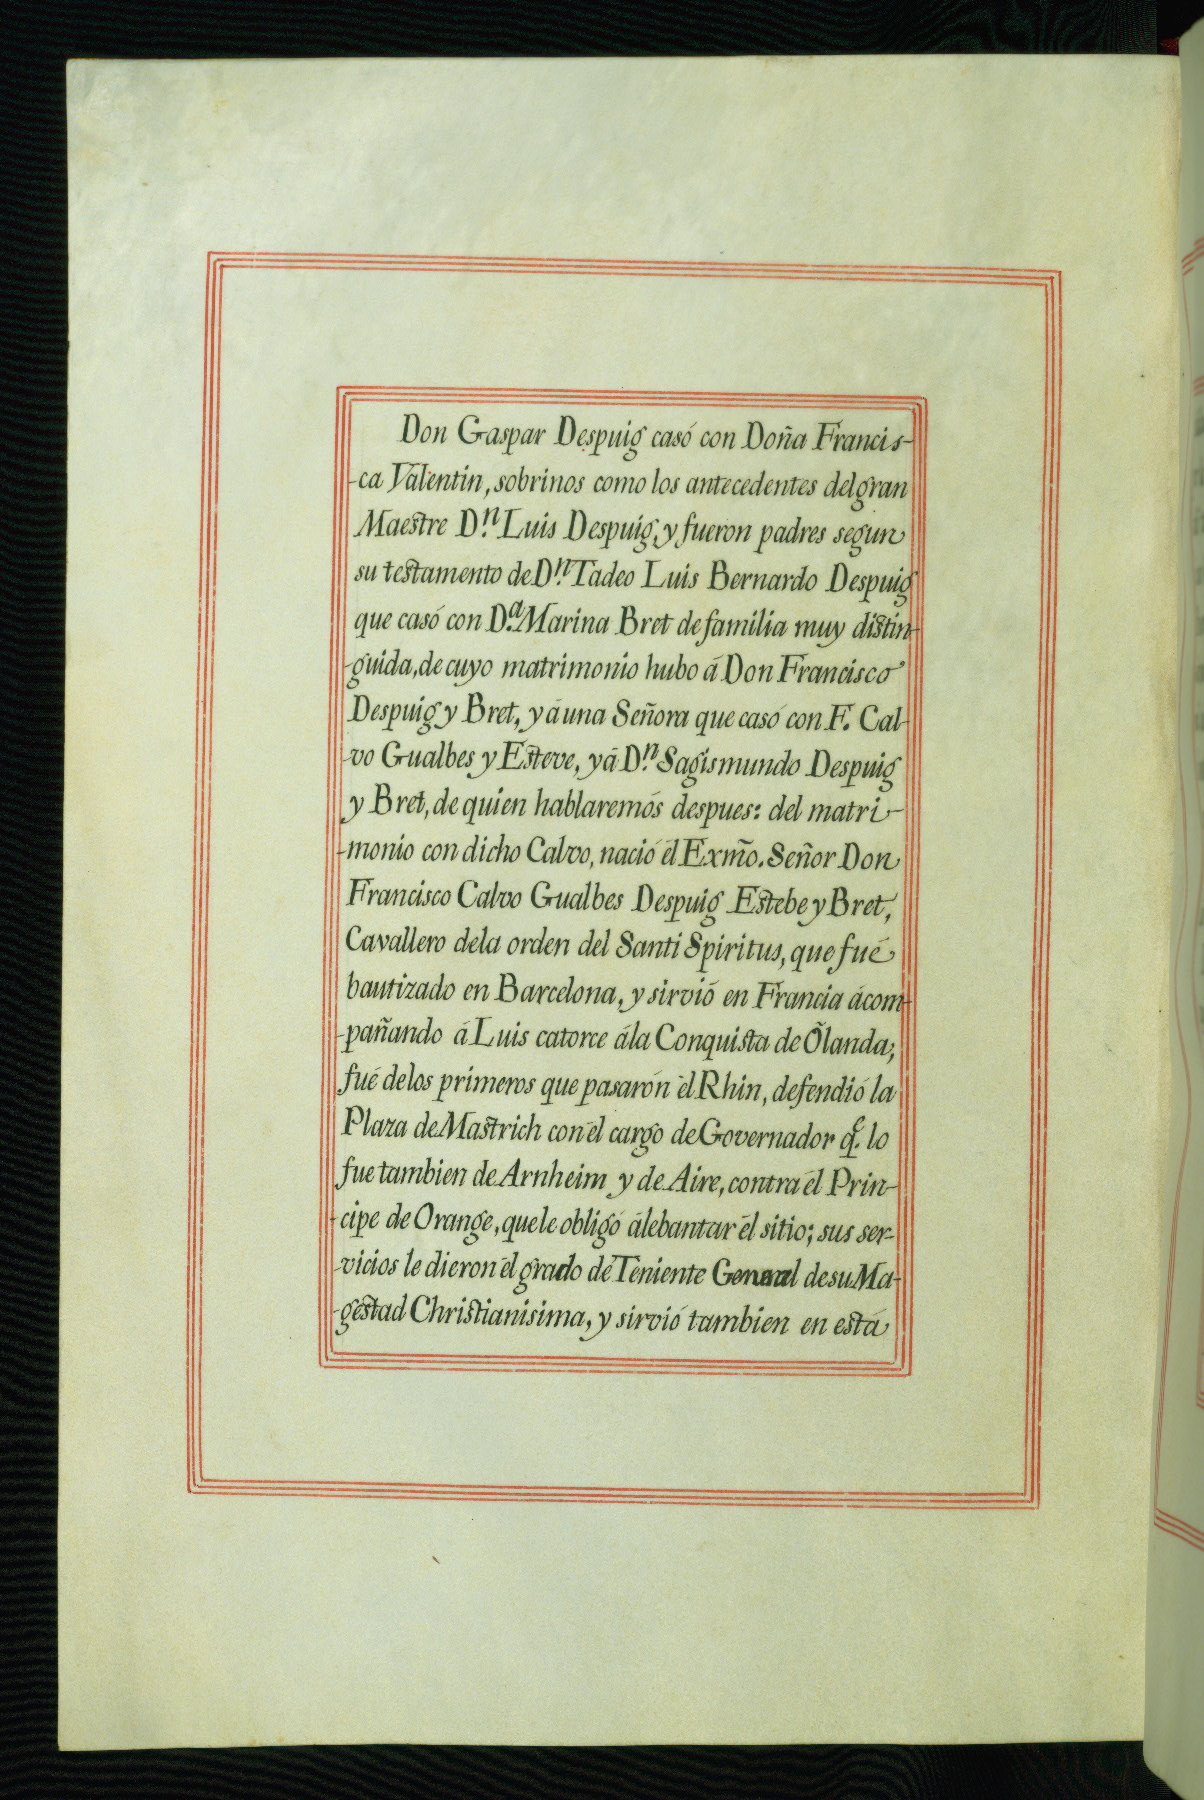 Don Gaspar Despuig casó con Doña Francis-
-ca Valentin, sobrinos como los antecedentes del gran
Maestre D.ⁿ Luis Despuig, y fueron padres segun
su testamento de D.ⁿ Tadeo Luis Bernardo Despuig
que casó con D.ª Marina Bret de familia muy distin-
-guida, de cuyo matrimonio hubo á Don Francisco
Despuig y Bret, y á una Señora que casó con F. Cal-
-vo Gualbes y Esteve, y á D.ⁿ Sagismundo Despuig
y Bret, de quien hablaremós despues: del matri-
-monio con dicho Calvo, nació él Exm̃o. Señor Don
Francisco Calvo Gualbes Despuig Estebe y Bret,
Cavallero dela orden del Santi Spiritus, que fué
bautizado en Barcelona, y sirvió en Francia ácom-
-pañando á Luis catorce ála Conquista de Õlanda;
fué delos primeros que pasarón él Rhin, defendió la
Plaza de Mastrich con él cargo de Governador q.ᵉ lo
fue tambien de Arnheim y de Aire, contra él Prin-
-cipe de Orange, que le obligó álebantar él sitio; sus ser-
-vicios le dieron él grado de Teniente General de su Ma-
-gestad Christianisima, y sirvió tambien en está